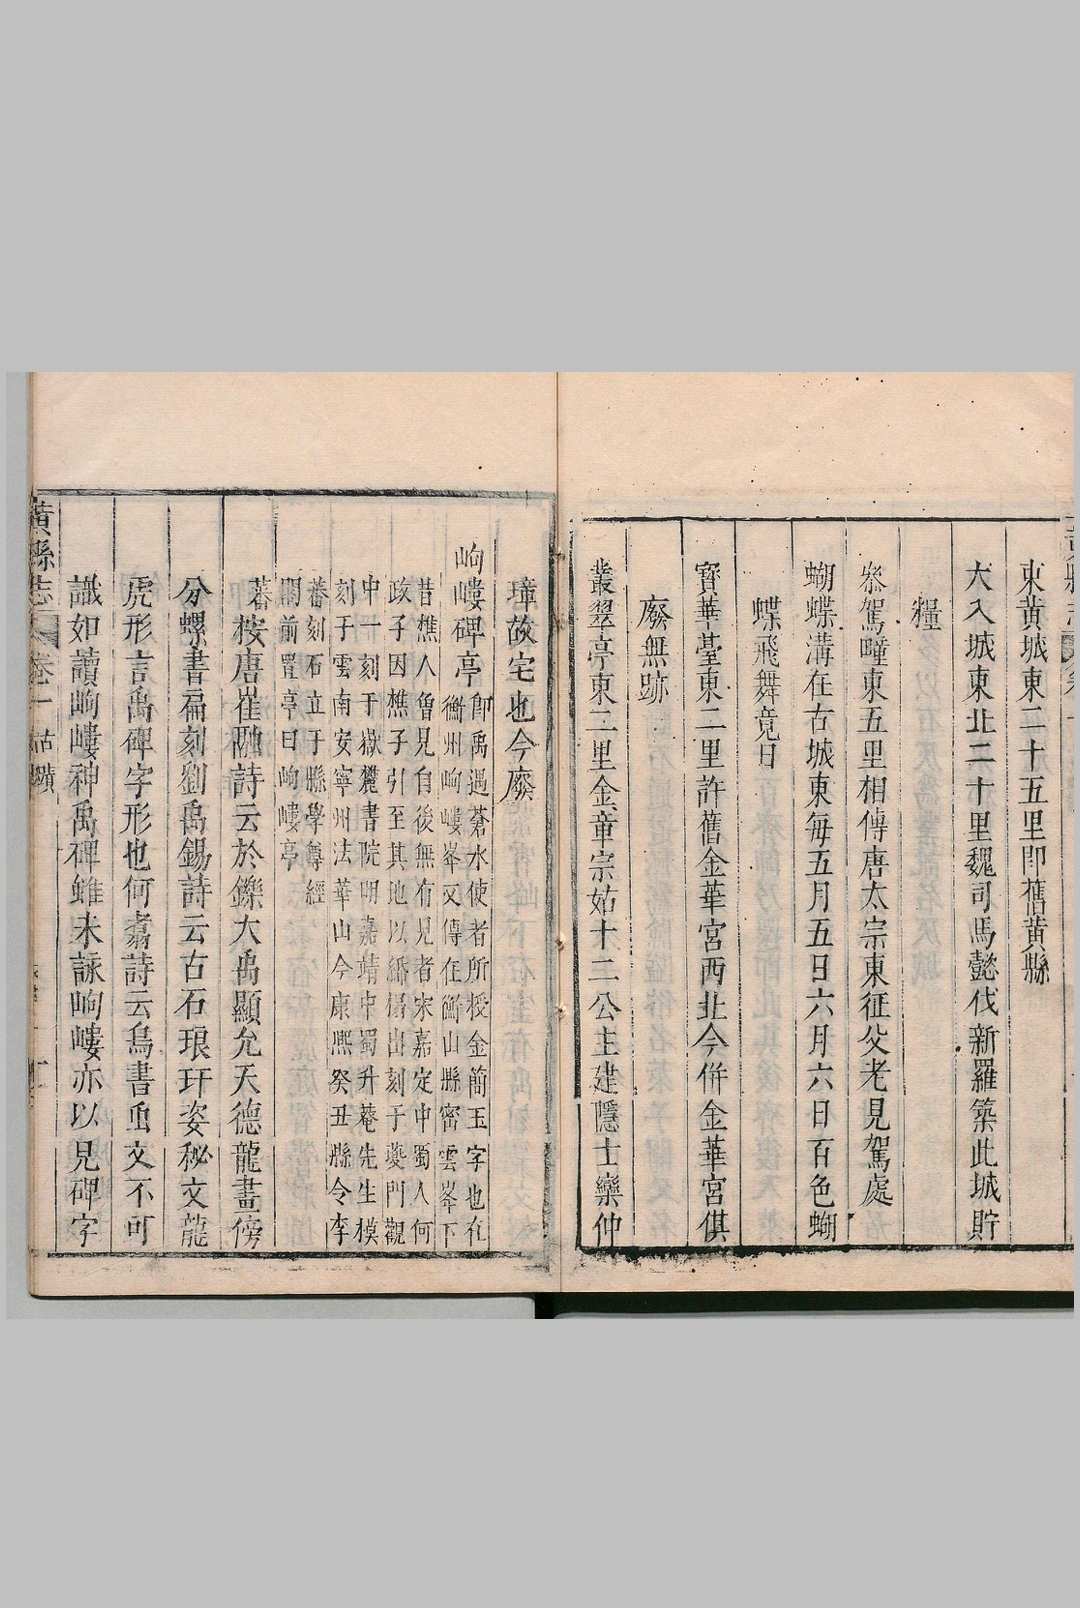 東黃城東二十五里即舊黃縣
大人城東北二十里魏司馬懿伐新羅築此城貯
糧
叅駕疃東五里相傳唐太宗東征父老見駕處
蝴蝶溝在古城東每五月五日六月六日百色蝴
蝶飛舞竟日
寳華臺東二里許舊金華宮西北今併金華宮俱
廢無跡
叢翠亭東二里金童宗姑十二公主建隱士欒仲
璋故宅也今廢
岣嶁碑亭
即禹遇蒼水使者所授金簡玉字也在
衡州岣嶁峯又傳在衡山縣密雲峯下
昔樵人曾見自後無有見者宋嘉定中蜀人何
政子因樵子引至其地以紙搨出刻于夔門觀
中一刻于嶽麓書院明嘉靖中蜀升菴先生模
刻于雲南安寧州法華山今康熙癸丑縣令李
蕃刻石立于縣學尊經
閣前置亭曰岣嶁亭
蕃按唐崔融詩云於鑠大禹顯允天德龍畫傍
分螺書匾刻劉禹錫詩云古石琅玕姿秘文龍
虎形言禹碑字形也何翥詩云鳥書虫文不可
識如讀岣嶁神禹碑雖未詠岣嶁亦以見碑字
黃縣志 卷一 古蹟